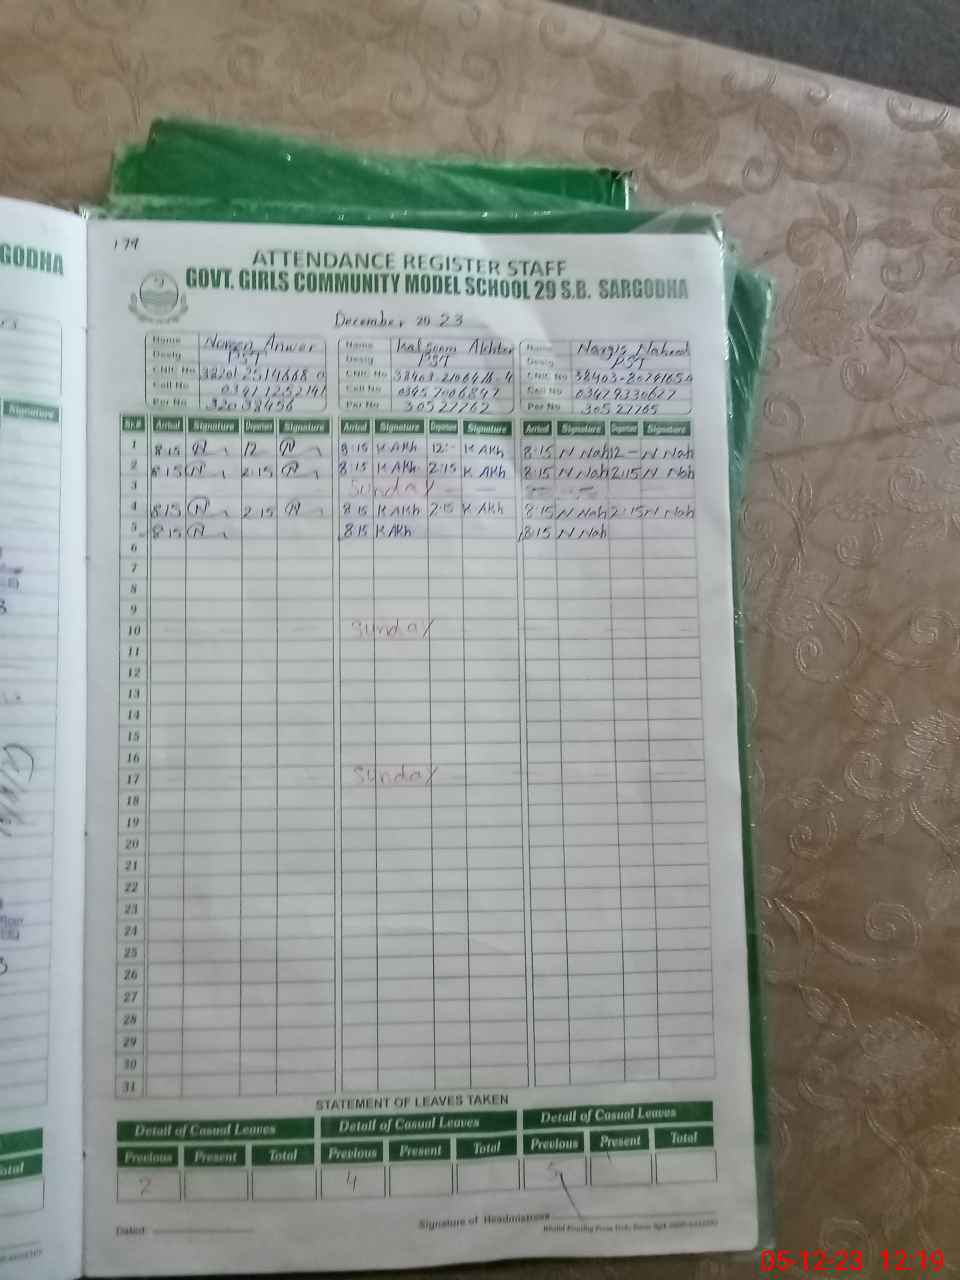 GODHA
Signature
179
ATTENDANCE REGISTER STAFF
GOVT. GIRLS COMMUNITY MODEL SCHOOL 29 S.B. SARGODHA
December 2023
Name Noreen Anwer Name Kalsoom Akhtar Name Nargis Naheed
Desig PST Desig PST Desig PST
CNIC No CNIC No CNIC No
Cell No Cell No Cell No
Per No 32038456 Per No 30527762 Per No 30527765
Sr.# Arrival Signature Departure Signature Arrival Signature Departure Signature Arrival Signature Departure Signature
1 8:15 N 12 N 8:15 K AKh 12:- K AKh 8:15 N Nah 12 - N Nah
2 8:15 N 2:15 N 8:15 K AKh 2:15 K AKh 8:15 N Nah 2:15 N Nah
3 Sunday
4 8:15 N 2:15 N 8:15 K AKh 2:15 K AKh 8:15 N Nah 2:15 N Nah
5 8:15 N 8:15 K AKh 8:15 N Nah
6
7
8
9
10 Sunday
11
12
13
14
15
16
17 Sunday
18
19
20
21
22
23
24
25
26
27
28
29
30
31
STATEMENT OF LEAVES TAKEN
Detail of Casual Leaves Detail of Casual Leaves Detail of Casual Leaves
Previous Present Total Previous Present Total Previous Present Total
2 4 5
Dated Signature of Headmistress
05-12-23 12:19